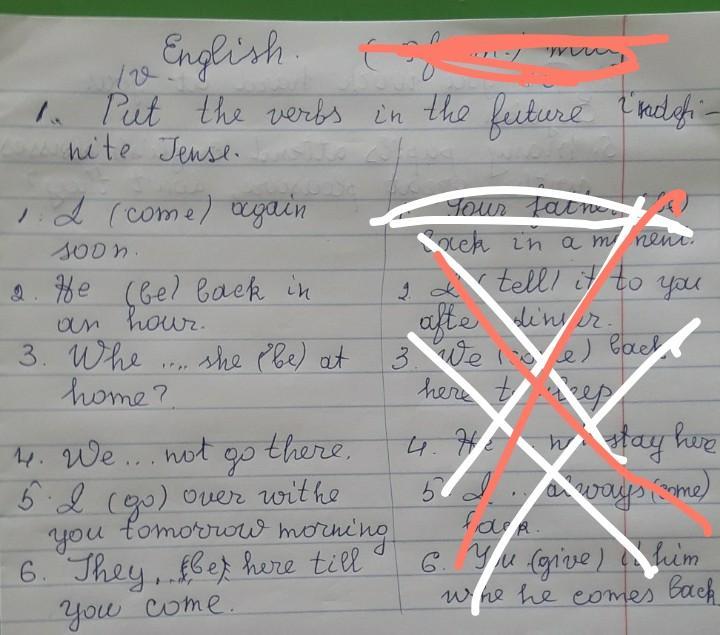 English.
1v.
1. Put the verbs in the future indefi-
nite Tense.
1. I (come) again
soon.
2. He (be) back in
an hour.
3. Whe .... she (be) at
home?
4. We... not go there.
5. I (go) over withe
you tomorrow morning
6. They... (be) here till
you come.
1. Your father (be)
back in a moment.
2. I (tell) it to you
after dinner.
3. We (come) back
here to sleep
4. He ... not stay here
5. I ... always (come)
back.
6. You (give) it him
whe he comes back